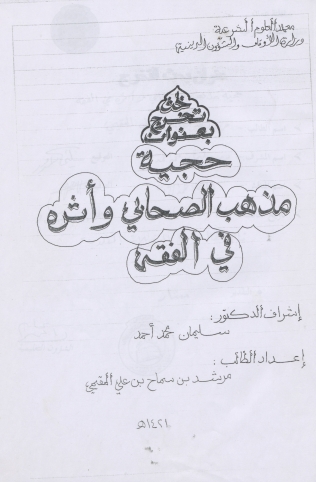 معهد العلوم الشرعية
وزارة الأوقاف والشؤون الدينية
بحث
تخرج
بعنوان
حجية
مذهب الصحابي وأثره
في الفقه
إشراف الدكتور:
سليمان محمد أحمد
إعداد الطالب:
مرشد بن سماح بن علي المقيمي
١٤٢١هـ